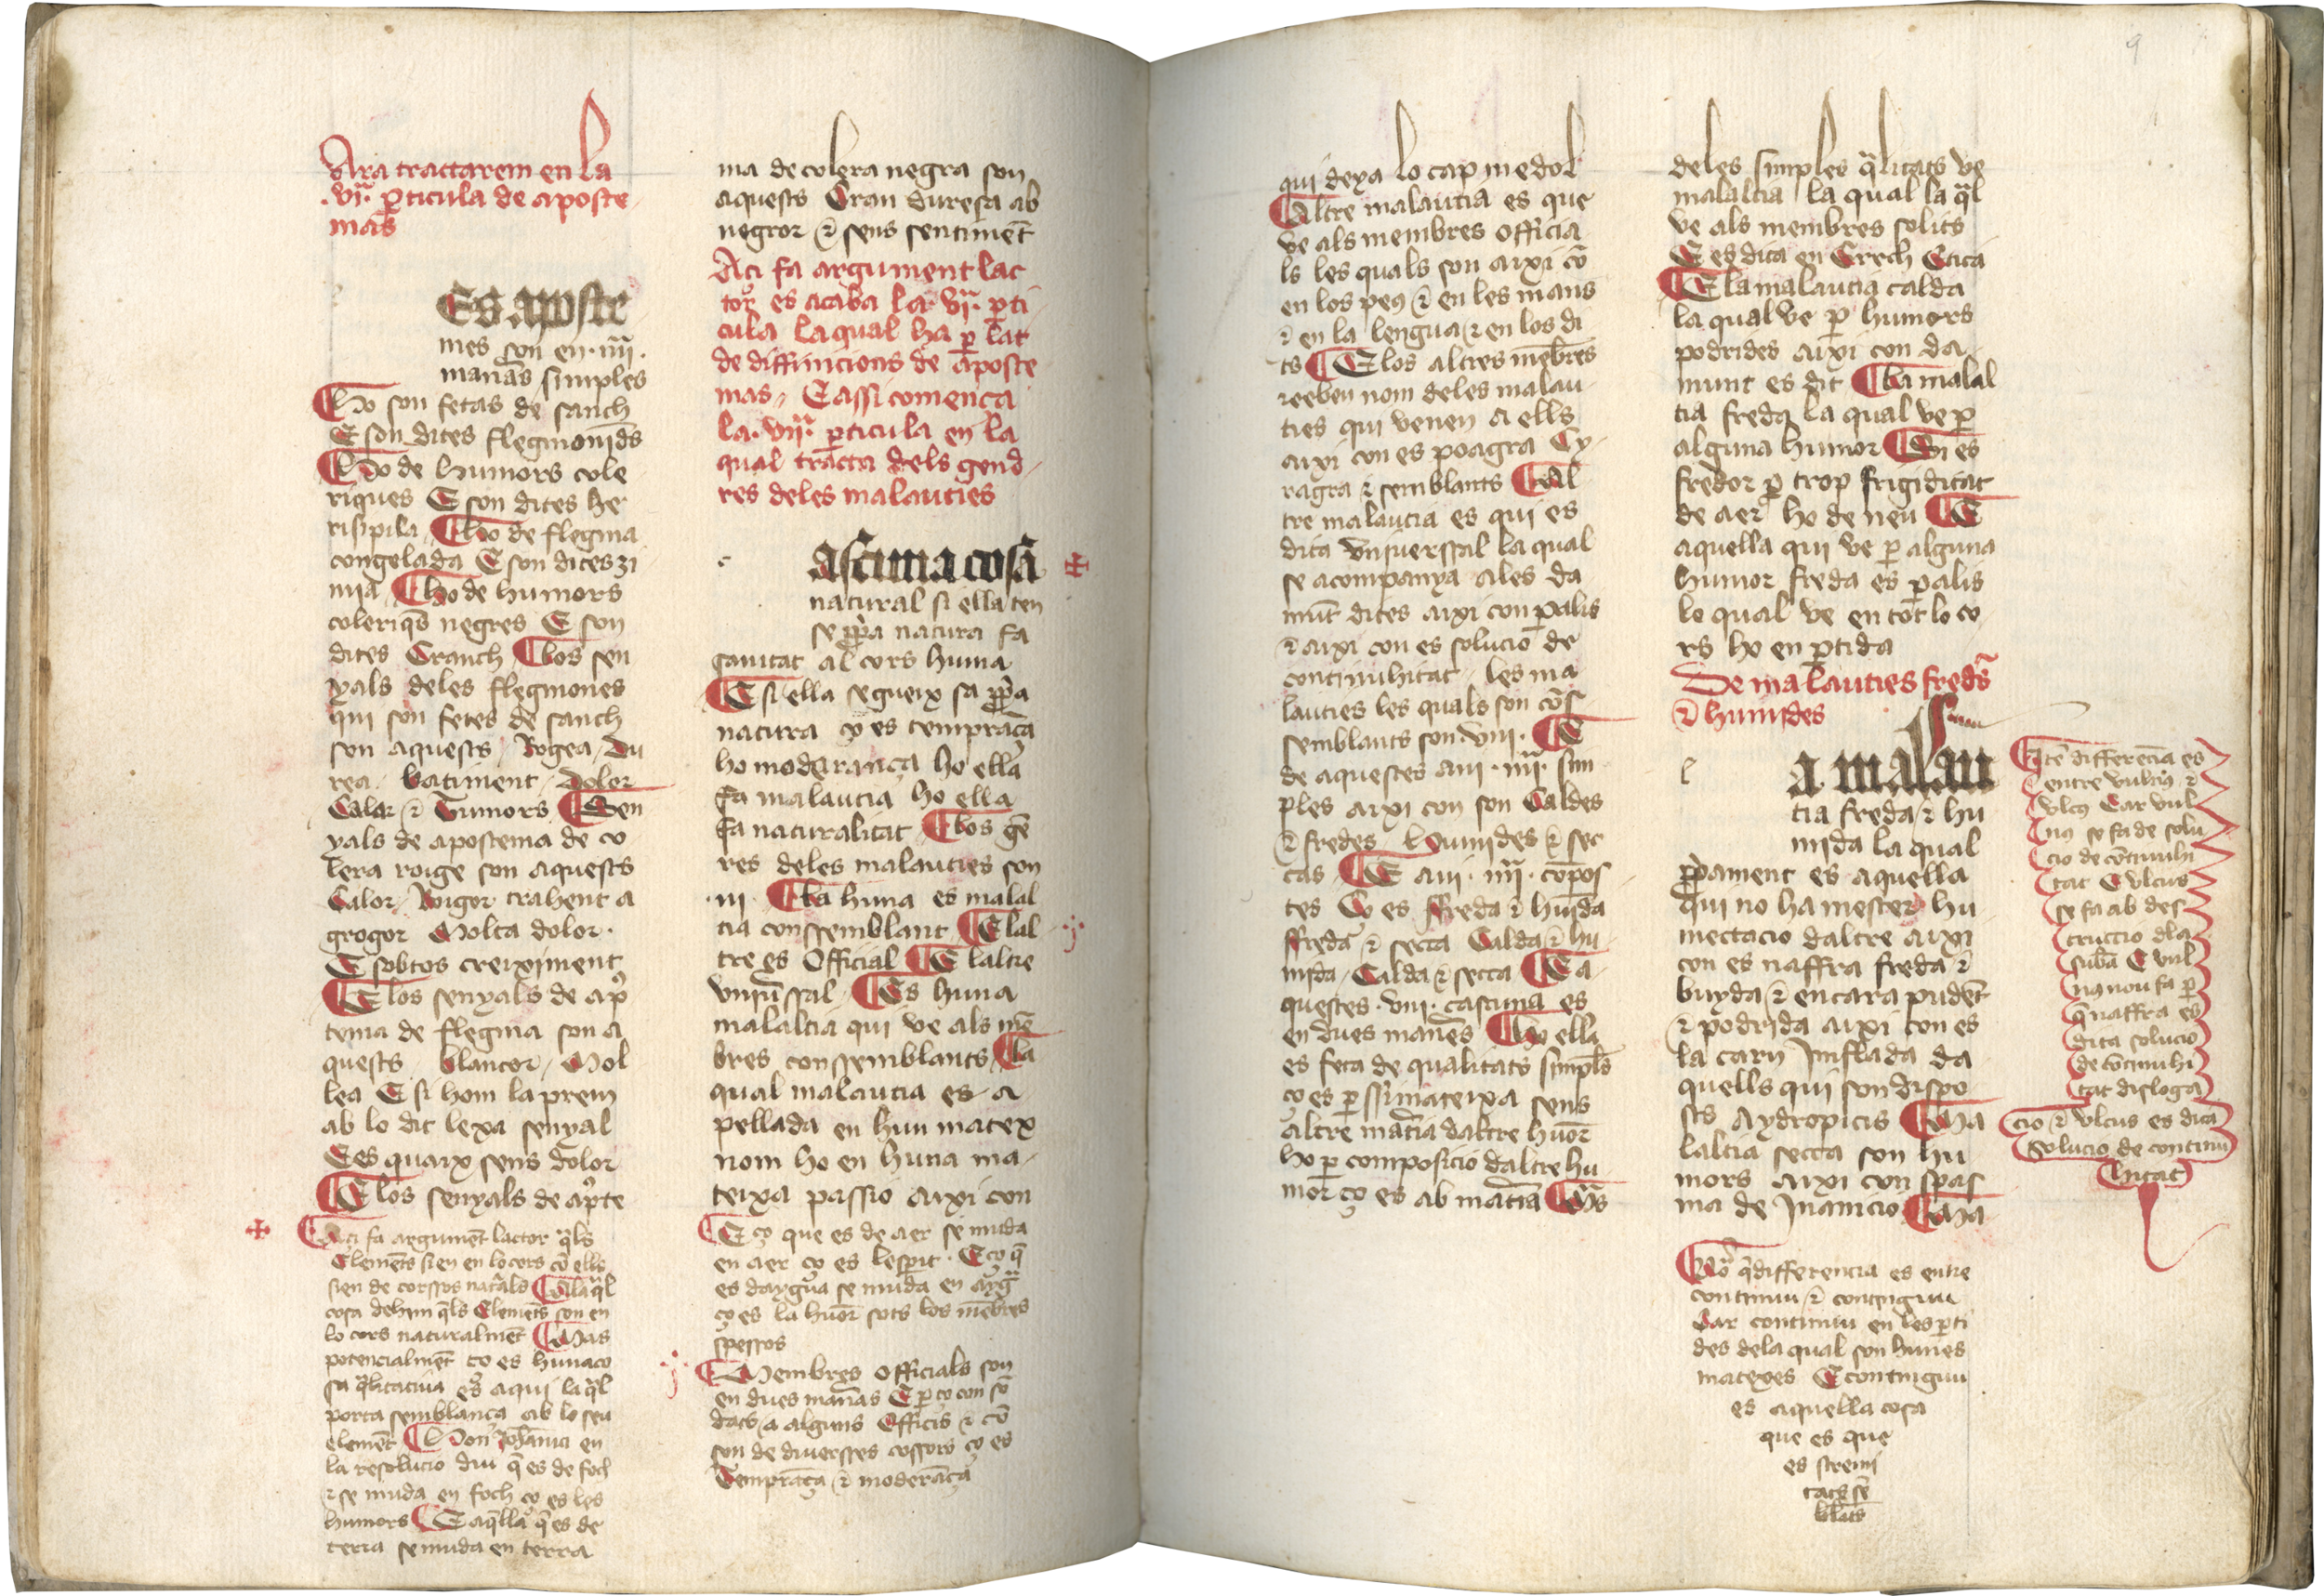 Ara tractarem en la
.vj.ª p̱ticula de aposte
mas
Es aposte
mes son en .iiij.
maneras simples
Ho son fetas de sanch
E son dites flegmonids
Ho de humors cole
riques E son dites he
risipila Ho de flegma
congelada E son dites zi
mia Ho de humors
coleriq̄s negres E son
dites Cranch Los sen
yals deles flegmones
qui son fetes de sanch
son aquests Rogea du
rea batiment dolor
Calor ⁊ tumors Sen
yals de apostema de co
lera roige son aquests
Calor Roigor trahent a
grogor Molta dolor
E sobtos creiximent
E los senyals de apos
tema de flegma son a
quests blancor Mol
lea E si hom la prem
ab lo dit lexa senyal
E es quaix sens dolor
E los senyals de aposte
Aci fa argumēt lactor q̄ls
Elemēts sien en lo cors cō ells
sien de corssos nat̄als E la q̄l
cosa dehim q̄ls Elemēts son en
lo cors naturalmēt Mas
potencialmēt ço es huna co
sa q̄litatiua es aqui la q̄l
porta semblança ab lo seu
elemēt Hon Johānici en
la resolucio diu q̄ es de foch
⁊ se muda en foch ço es les
humors E aq̄lla q̄ es de
terra se muda en terra
ma de colera negra son
aquests Gran duresa ab
negror ⁊ sens sentimēt
Aci fa argument lac
tor es acaba la .vj.ª p̱ti
cula la qual ha p̱ lat
de diffinicions de aposte
mas E assi comença
la .vij.ª p̱ticula en la
qual tracta dels gend
res deles malauties
Ascuna cosa
natural si ella ten
se p̱p̱a natura fa
sanitat al cors huma
E si ella segueix sa p̱p̱a
natura ço es temprāça
ho moderança ho ella
fa malautia ho ella
fa naturalitat Los gē
res deles malauties son
.iij. La huna es malal
tia conssemblant E lal
tre es Official E laltre
vniūssal Es huna
malaltia qui ve als mē
bres conssemblants La
qual malautia es a
pellada en hun matex
nom ho en huna ma
teixa passio aixi con
E ço que es de aer se muda
en aer ço es lesp̄it. E ço q̄
es daygua se muda en ayg̃
ço es la huor̄ sots los mēbres
spessos
Membres officials son
en dues manēas E p̱ço con sō
dats a alguns Officis ⁊ cō
son de diuersses cossors ço es
Temprāça ⁊ moderāça
qui dexa lo cap me dol
Altre malautia es que
ve als membres officia
ls les quals son aixi cō
en los peus ⁊ en les mans
⁊ en la lengua ⁊ en los di
ts E los altres mēbres
reeben nom deles malau
ties qui venen a ells
aixi con es poagra Cy
ragra ⁊ semblants Al
tre malautia es qui es
dita vniuerssal la qual
se acompanya ales da
mūt dites aixi con palis
⁊ aixi con es solucio de
continuhitat les ma
lauties les quals son cōs
semblants son .viij. E
de aquestes aui .iiij. sim
ples aixi con son Caldes
⁊ fredes humides ⁊ sec
cas E aui .iiij. compos
tes Ço es ffreda ⁊ humida
ffreda ⁊ secca Calda ⁊ hu
mida Calda ⁊ secca E a
questes .viij. cascuna es
en dues manēs Ho ella
es feta de qualitats simpls
ço es p̱ ssimateixa sens
altre matia daltre huor̄
ho p̱ composicio daltre hu
mor ço es ab matia Mes
deles simples q̄litats ve
malaltia la qual la q̄l
ve als membres solits
E es dita en Grech Etica
E la malautia calda
la qual ve p̱ humors
podrides aixi con da
munt es dit La malal
tia freda la qual ve p̱
alguna humor Si es
fredor p̱ trop frigiditat
de aer ho de neu E
aquella qui ve p̱ alguna
humor freda es palis
lo qual ve en tot lo co
rs ho en p̱tida
De malauties fredes
⁊ humides
a malau
tia freda ⁊ hu
mida la qual
p̱p̱ament es aquella
qui no ha mester hu
mectacio daltre aixi
con es naffra freda ⁊
buyda ⁊ encara pudēt
⁊ podrida aixi con es
la carn Inflada da
quells qui son dispo
sts Aydropicis Ma
laltia secca son hu
mors aixi con spas
ma de Inanicio Ma
No q̄ differencia es entre
continuu ⁊ continguu
Car continuu en les p̱ti
des dela qual son hunes
matexes E contuiguu
es aquella cosa
que es que
es stremi
tats sē
blāts
Itē differencia es
entre vulnus ⁊
vlcus Car vul
nus se fa de solu
cio de cōtinuhi
tat E vlcus
se fa ab des
truccio dla
subā E vul
nus nou fa p̱
q̄ naffra es
dita solucio
de cōtinuhi
tat disloga
cio ⁊ vlcus es dita
solucio de continu
hitat